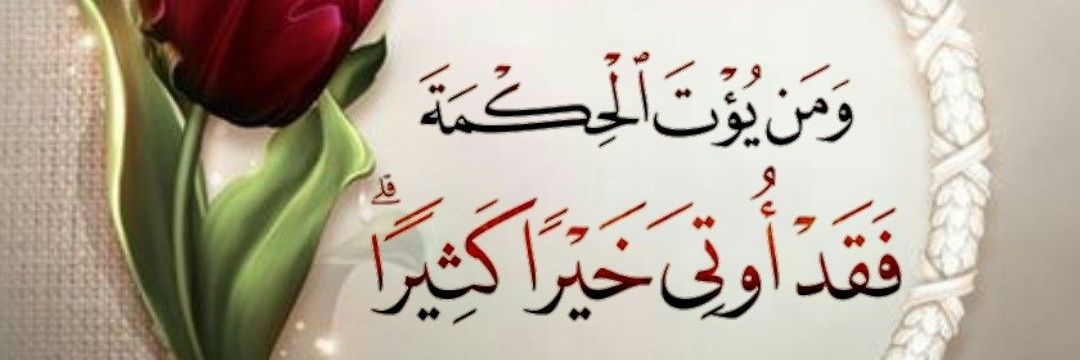 وَمَن يُؤْتَ ٱلْحِكْمَةَ
فَقَدْ أُوتِىَ خَيْرًا كَثِيرًا ۗ